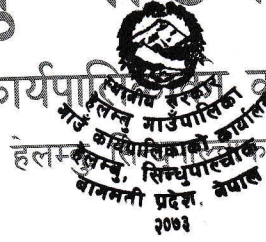 कार्यपालि
स्थानीय सरकार
हेलम्बु गाउँपालिका
गाउँ कार्यपालिकाको कार्यालय
हेलम्बु, सिन्धुपाल्चोक
बागमती प्रदेश, नेपाल
२०७३
हेलम्बु